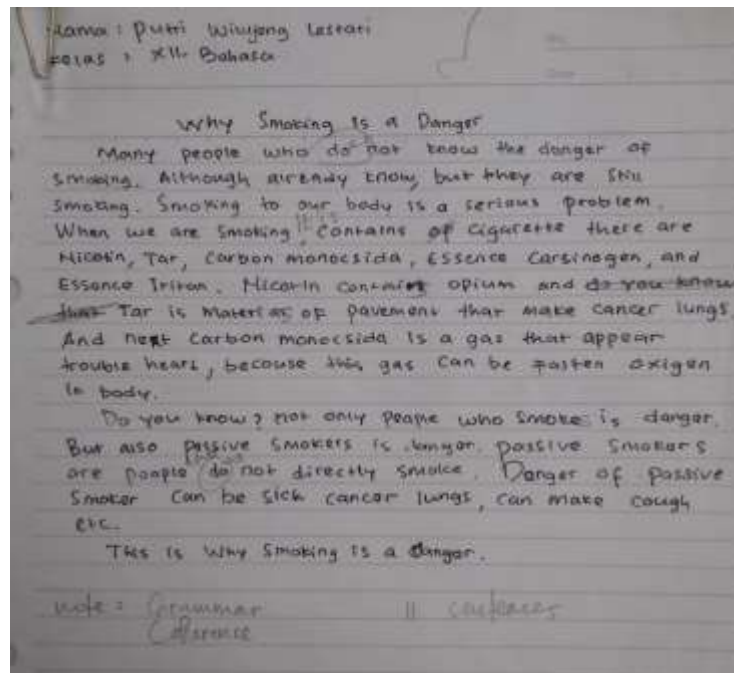 Nama : Putri Winujeng Lestari
Kelas : XII Bahasa
Why Smoking Is a Danger
Many people who do not know the danger of
smoking. Although already know, but they are still
smoking. Smoking to our body is a serious problem.
When we are smoking, contains of cigarette there are
Nicotin, Tar, Carbon monocsida, Essence Carsinogen, and
Essence Iritan. Nicotin contains opium and do you know
that Tar is materias of pavement that make cancer lungs.
And next Carbon monocsida is a gas that appear
trouble heart, because this gas can be fasten oxigen
in body.
Do you know? not only people who smoke is danger.
But also passive smokers is danger. passive smokers
are people do not directly smoke. Danger of passive
smoker can be sick cancer lungs, can make cough
etc.
This is Why Smoking Is a danger.
note : Grammar ||
Coherence